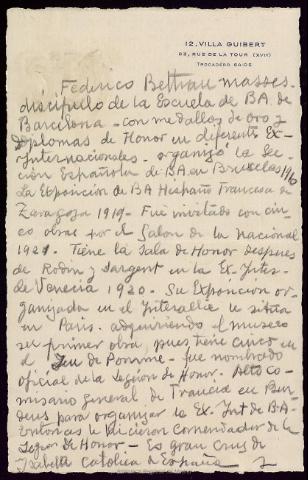 12, VILLA GUIBERT
83, RUE DE LA TOUR (XVI)
TROCADERO
Federico Beltran Masses
discipulo de la Escuela de BA. de
Barcelona - con medallas de oro y
Diplomas de Honor en diferents Ex-
Internacionales - organizó la Sec-
ción Española de BA. en Bruxelas 1910
La Exposicion de BA Hispano Francesa en
Zaragoza 1919 - Fue invitado con cin-
co obras por el Salon de la Nacional
1921. Tiene la Sala de Honor despues
de Rodin y Sargent en la Ex. Inter.
de Venecia 1920. Su Exposicion or-
ganizada en el Interallié le situa
en Paris. adquirriendo el museo
su primer obra, pues tiene cinco en
el Jeu de Pomme - fue nombrado
oficial de la Legion de Honor. Alto co-
misario general de Francia en Bur-
deus para organizar la Ex. Int de BA-
Entonces le hicieron Comendador de la
Legion de Honor - Es gran Cruz de
Isabel Catolica de España